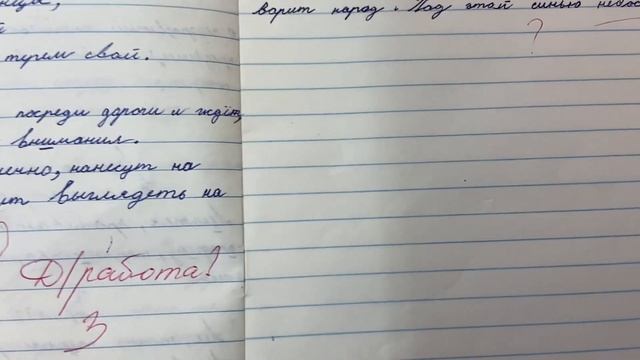 терем свой.
посреди дороги и ждёт,
внимания.
нанесут на
выглядеть на
Д/работа?
3
варит народ. Над этой синью
?